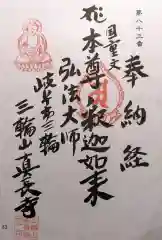 第八十三番
奉納経
国重文
本尊釈迦如来
弘法大師
岐阜第三輪
三輪山真長寺